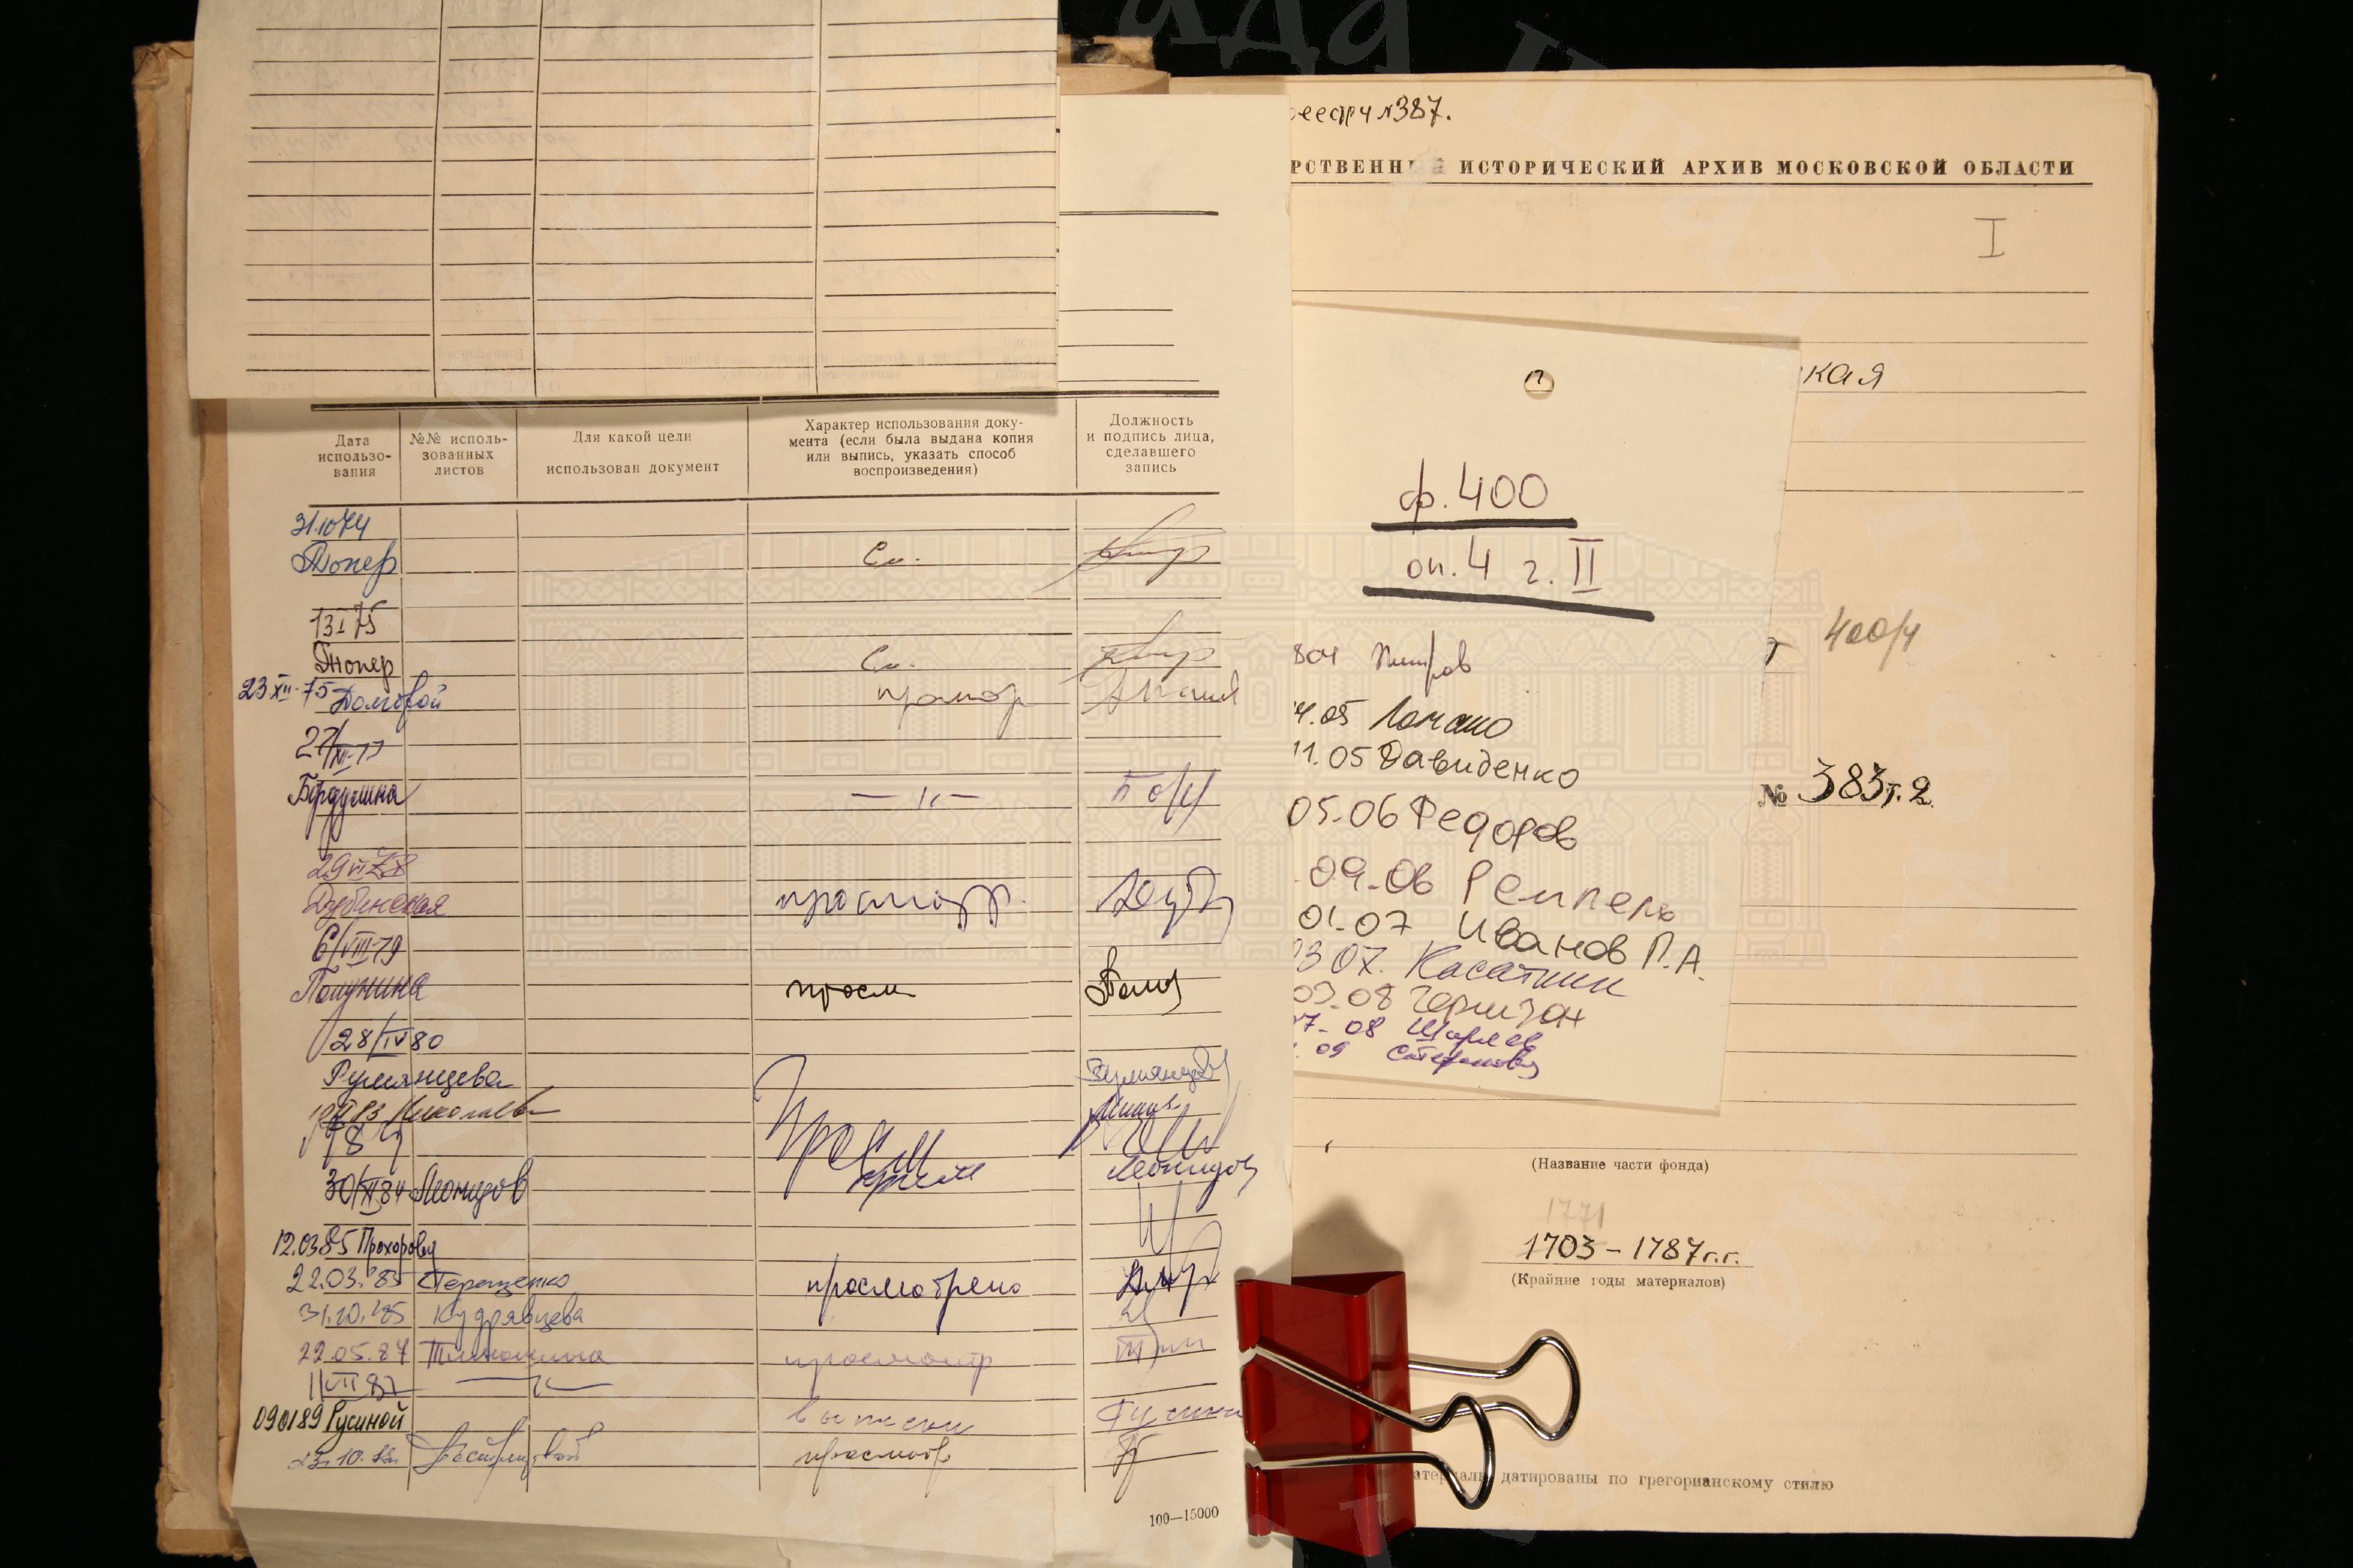 Дата использо- вания
№№ исполь- зованных листов
Для какой цели использован документ
Характер использования доку- мента (если была выдана копия или выпись, указать способ воспроизведения)
Должность и подпись лица, сделавшего запись
31.10 74
См.
13 I 75
См.
23 XII-75 Домовой
Бердушина
— " —
29 VI 78
Дубинская просмотр.
6/VIII-79
Полунина просм
28/IV 80
Румянцева Румянцева
83 Николаева
84 Просм
30/XI 84 Леонидов просм Леонидов
12.03 85 Прохорова
22.03.85 Терещенко просмотрено
31.10.85 Кудрявцева
22.05.87 просмотр
11 VII 87 — " —
090189 Русиной выписки Русина
просмотр
100—15000
№387.
РСТВЕНН ИСТОРИЧЕСКИЙ АРХИВ МОСКОВСКОЙ ОБЛАСТИ
I
кая
ф. 400
оп. 4 г. II
400/4
4.05 Ломако
11.05 Давиденко
05.06 Федоров
09-06 Ремпель
01.07 Иванов П.А.
03 07. Касаткин
03.08
7-08
.09 Степанова
№ 383 т. 2
(Название части фонда)
1771
1703 – 1787 г.г.
(Крайние годы материалов)
атериалы датированы по грегорианскому стилю